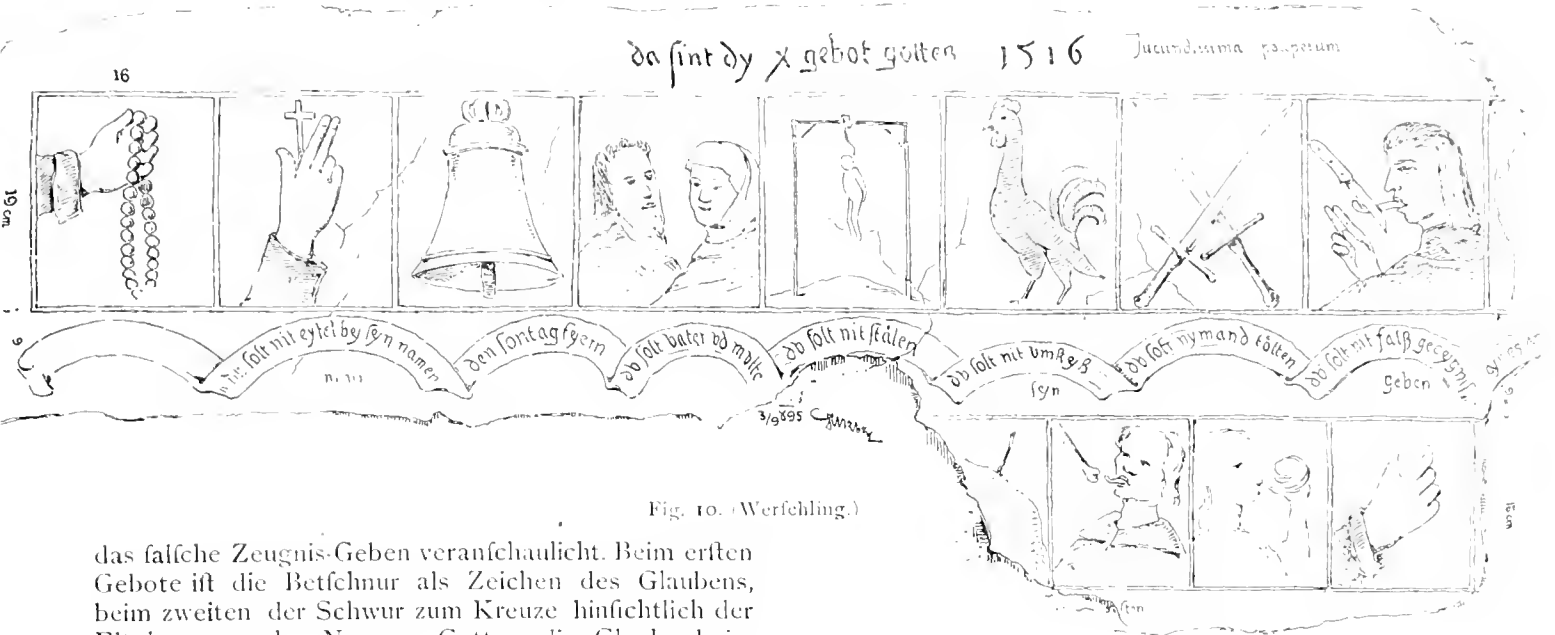 da sint dy x gebot gotten 1516 Jucundissima
16
19 cm
nit eytel bey seyn namen
den sontag fyern
dv solt vater vd mvtte
dv solt nit stälen
dv solt nit vmkeyß
seyn
dv solt nymand tötten
dv solt nit falß
geben
3/9 895
Fig. 10. (Werſchling.)
das falſche Zeugnis-Geben veranſchaulicht. Beim erſten
Gebote iſt die Betſchnur als Zeichen des Glaubens,
beim zweiten der Schwur zum Kreuze hinſichtlich der